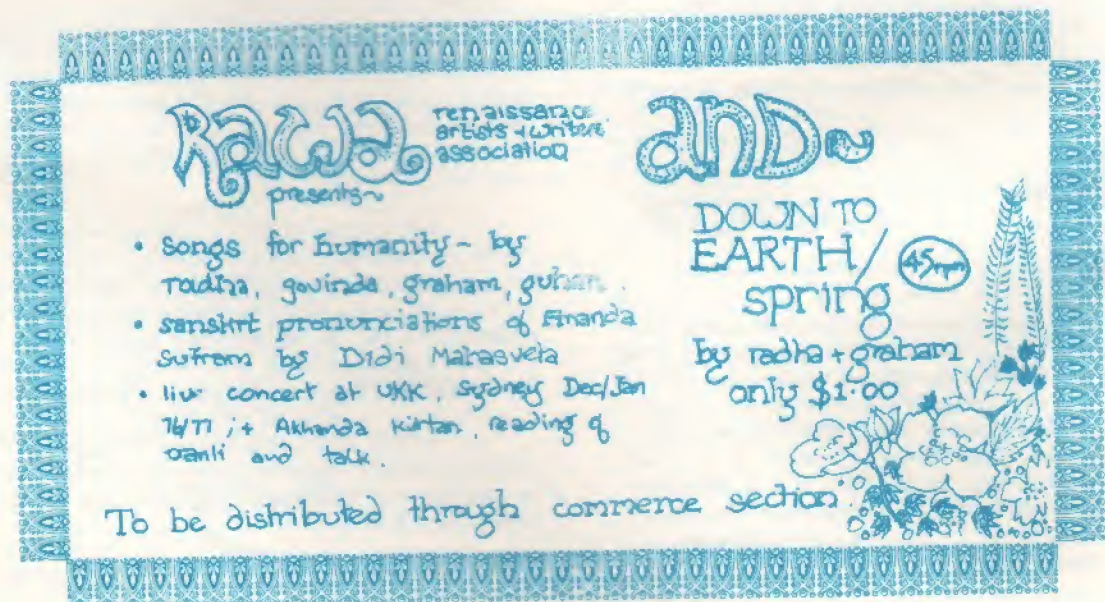 RAWA
renaissance
artists + writers
association
presents~
• songs for humanity - by
radha, govinda, graham, guhan.
• sanskrt pronunciations of Ananda
Sutram by Didi Mahasveta
• live concert at UKK, Sydney Dec/Jan
76/77 ; + Akhanda Kiirtan, reading of
and talk.
AND~
DOWN TO
EARTH/
spring
45rpm
by radha + graham
only $1.00
To be distributed through commerce section